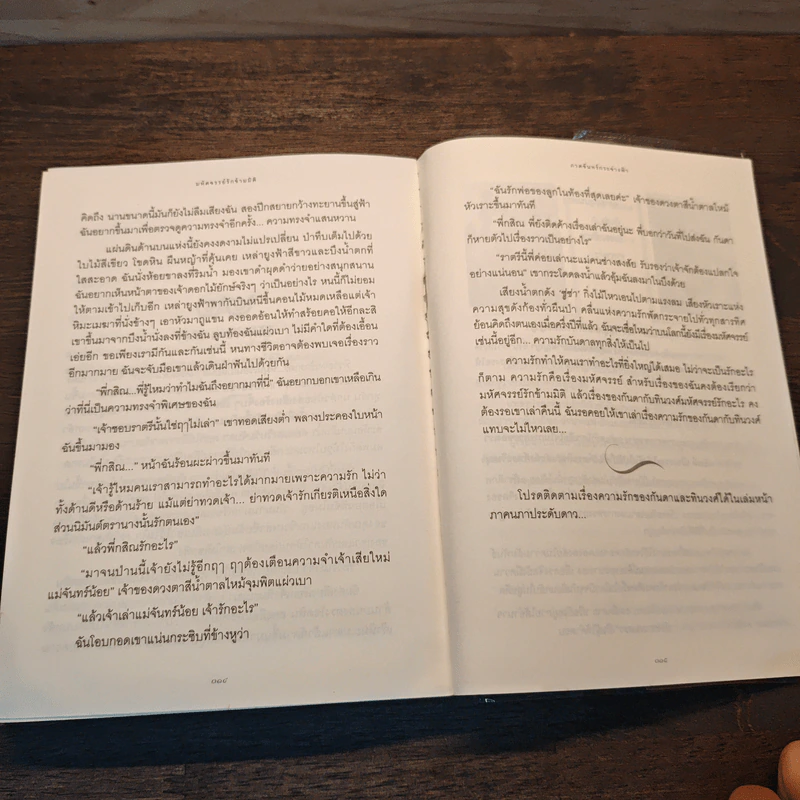 มหัศจรรย์รักข้ามมิติ
คิดถึง นานขนาดนี้มันก็ยังไม่ลืมเสียงฉัน สองปีกสยายกว้างทะยานขึ้นสู่ฟ้า
ฉันอยากขึ้นมาเพื่อตรวจดูความทรงจำอีกครั้ง... ความทรงจำแสนหวาน
แผ่นดินด้านบนแห่งนี้ยังคงงดงามไม่แปรเปลี่ยน ป่าทึบเต็มไปด้วย
ใบไม้สีเขียว โขดหิน ผืนหญ้าที่คุ้นเคย เหล่ายูงฟ้าสีขาวและบึงน้ำตกที่
ใสสะอาด ฉันนั่งห้อยขาลงที่ริมน้ำ มองเขาดำผุดดำว่ายอย่างสนุกสนาน
ฉันอยากเห็นหน้าตาของเจ้าดอกไม้ยักษ์จริงๆ ว่าเป็นอย่างไร หนนี้ก็ไม่ยอม
ให้ตามเข้าไปเก็บอีก เหล่ายูงฟ้าพากันบินหนีขึ้นคอนไม้หมดเหลือแต่เจ้า
หิมะเมฆาที่นั่งข้างๆ เอาหัวมาถูแขน คงออดอ้อนให้ทำสร้อยคอให้อีกละสิ
เขาขึ้นมาจากบึงน้ำนั่งลงที่ข้างฉัน ลูบท้องฉันแผ่วเบา ไม่มีคำใดที่ต้องเอื้อน
เอ่ยอีก ขอเพียงเรามีกันและกันเช่นนี้ หนทางชีวิตอาจต้องพบเจอเรื่องราว
อีกมากมาย ฉันจะจับมือเขาแล้วเดินฝ่าฟันไปด้วยกัน
“พี่กสิณ...พี่รู้ไหมว่าทำไมฉันถึงอยากมาที่นี่” ฉันอยากบอกเขาเหลือเกิน
ว่าที่นี่เป็นความทรงจำพิเศษของฉัน
“เจ้าชอบราตรีนั้นใช่ฤๅไม่เล่า” เขาทอดเสียงต่ำ พลางประคองใบหน้า
ฉันขึ้นมามอง
“พี่กสิณ...” หน้าฉันร้อนผะผ่าวขึ้นมาทันที
“เจ้ารู้ไหมคนเราสามารถทำอะไรได้มากมายเพราะความรัก ไม่ว่า
ทั้งด้านดีหรือด้านร้าย แม้แต่ย่าทวดเจ้า... ย่าทวดเจ้ารักเกียรติเหนือสิ่งใด
ส่วนนิมันต์ตรานางนั้นรักตนเอง”
“แล้วพี่กสิณรักอะไร”
“มาจนป่านนี้เจ้ายังไม่รู้อีกฤๅ ฤๅต้องเตือนความจำเจ้าเสียใหม่
แม่จันทร์น้อย” เจ้าของดวงตาสีน้ำตาลไหม้จุมพิตแผ่วเบา
“แล้วเจ้าเล่าแม่จันทร์น้อย เจ้ารักอะไร”
ฉันโอบกอดเขาแน่นกระซิบที่ข้างหูว่า
“ฉันรักพ่อของลูกในท้องที่สุดเลยค่ะ” เจ้าของดวงตาสีน้ำตาลไหม้
หัวเราะขึ้นมาทันที
“พี่กสิณ พี่ยังติดค้างเรื่องเล่าฉันอยู่นะ พี่บอกว่าวันที่ไปส่งฉัน กันดา
ก็หายตัวไปเรื่องราวเป็นอย่างไร”
“ราตรีนี้พี่ค่อยเล่านะแม่คนช่างสงสัย รับรองว่าเจ้าจักต้องแปลกใจ
อย่างแน่นอน” เขากระโดดลงน้ำแล้วอุ้มฉันลงมาในบึงด้วย
เสียงน้ำตกดัง ‘ซู่ซ่า’ กิ่งไม้ไหวเอนไปตามแรงลม เสียงหัวเราะแห่ง
ความสุขดังก้องทั่วผืนป่า คลื่นแห่งความรักพัดกระจายไปทั่วทุกสารทิศ
ย้อนคิดถึงตนเองเมื่อครึ่งปีที่แล้ว ฉันจะเชื่อไหมว่าบนโลกนี้ยังมีเรื่องมหัศจรรย์
เช่นนี้อยู่อีก... ความรักบันดาลทุกสิ่งให้เป็นไป
ความรักทำให้คนเราทำอะไรที่ยิ่งใหญ่ได้เสมอ ไม่ว่าจะเป็นรักอะไร
ก็ตาม ความรักคือเรื่องมหัศจรรย์ สำหรับเรื่องของฉันคงต้องเรียกว่า
มหัศจรรย์รักข้ามมิติ แล้วเรื่องของกันดากับทินวงศ์มหัศจรรย์รักอะไร คง
ต้องรอเขาเล่าคืนนี้ ฉันรอคอยให้เขาเล่าเรื่องความรักของกันดากับทินวงศ์
แทบจะไม่ไหวเลย...
โปรดติดตามเรื่องความรักของกันดาและทินวงศ์ได้ในเล่มหน้า
ภาคนภาประดับดาว...